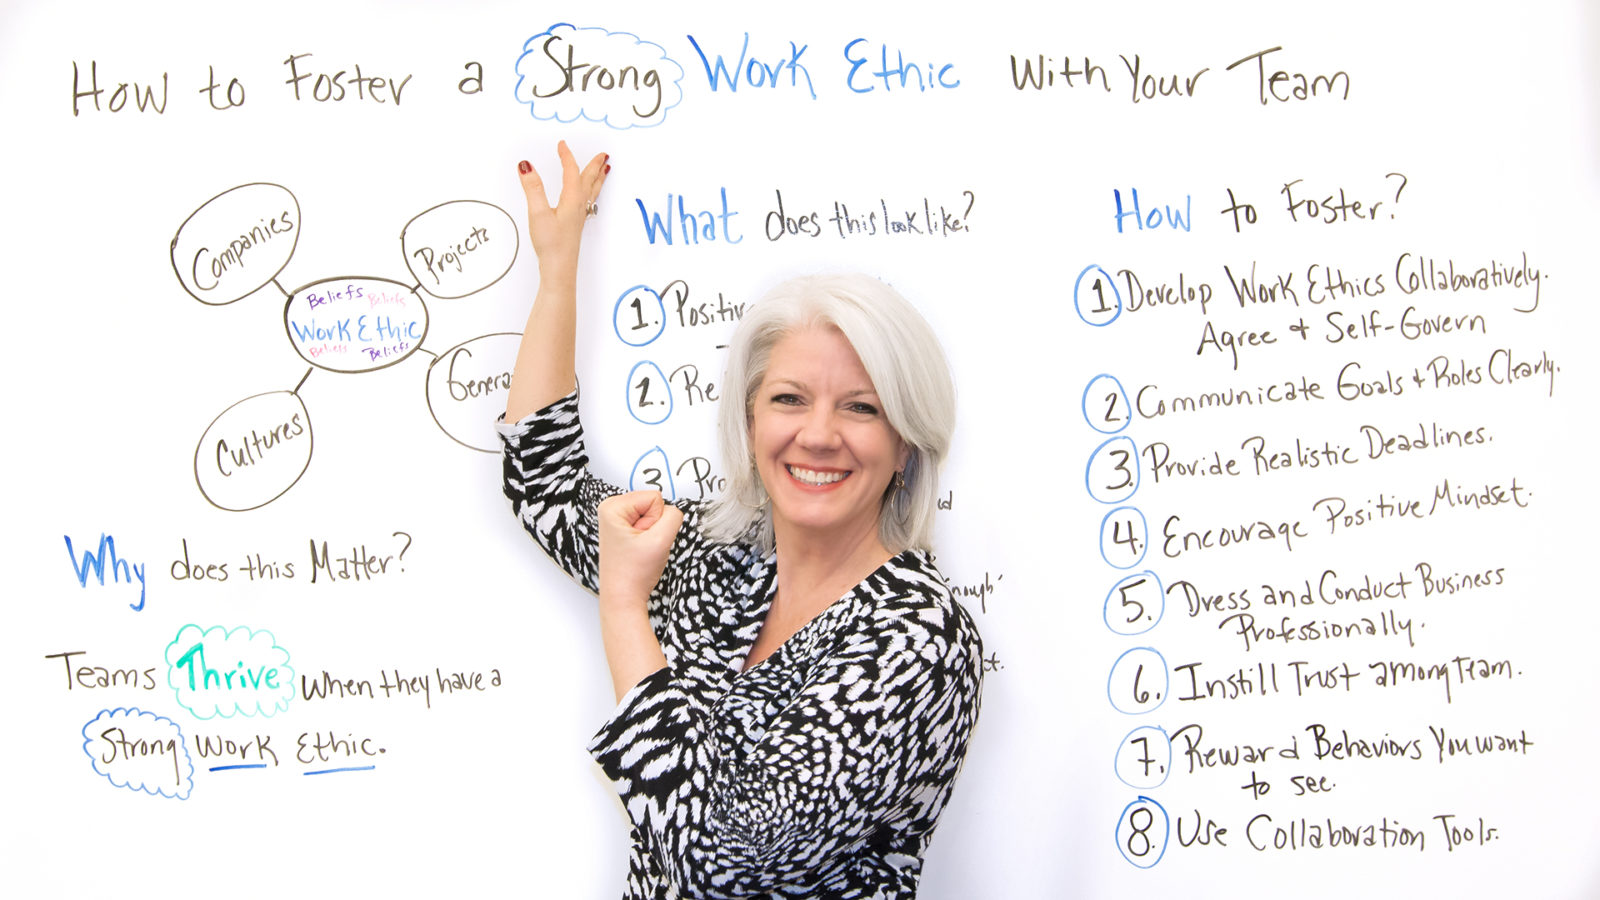 How to Foster a Strong Work Ethic With Your Team
Companies
Projects
Beliefs Beliefs
Work Ethic
Beliefs Beliefs
Cultures
Why does this Matter?
Teams Thrive when they have a
Strong Work Ethic.
What does this look like?
1.
2.
3.
How to Foster?
1. Develop Work Ethics Collaboratively.
Agree + Self-Govern
2. Communicate Goals + Roles Clearly.
3. Provide Realistic Deadlines.
4. Encourage Positive Mindset.
5. Dress and Conduct Business
Professionally.
6. Instill Trust among Team.
7. Reward Behaviors You want
to see.
8. Use Collaboration Tools.